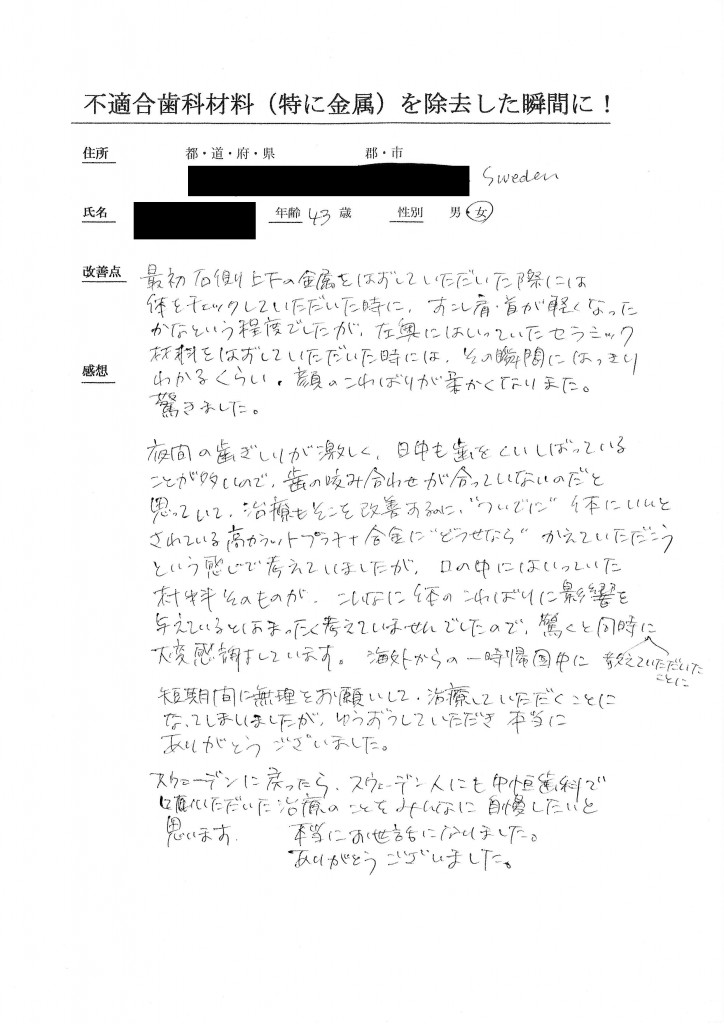 不適合歯科材料（特に金属）を除去した瞬間に！
住所 都・道・府・県 郡・市
Sweden
氏名 年齢 43 歳 性別 男・女
改善点
最初右側上下の金属をはずしていただいた際には
体をチェックしていただいた時に、すこし肩・首が軽くなった
かなという程度でしたが、左奥にはいっていたセラミック
感想
材料をはずしていただいた時には、その瞬間にはっきり
わかるくらい、顔のこわばりが柔かくなりました。
驚きました。
夜間の歯ぎしりが激しく、日中も歯をくいしばっている
ことが多いので、歯の咬み合わせが合っていないのだと
思っていて、治療もそこを改善するのに、"ついでに" 体にいいと
されている高カラットプラチナ合金に"どうせなら" かえていただこう
という感じで考えていましたが、口の中にはいっていた
材料そのものが、こんなに体のこわばりに影響を
与えているとはまったく考えていませんでしたので、驚くと同時に
大変感謝しています。海外からの一時帰国中に 教えていただいた
ことに
短期間に無理をお願いして、治療していただくことに
なってしまいましたが、ゆうずうしていただき 本当に
ありがとうございました。
スウェーデンに戻ったら、スウェーデン人にも 歯科で
いただいた治療のことをみんなに自慢したいと
思います。 本当にお世話になりました。
ありがとうございました。